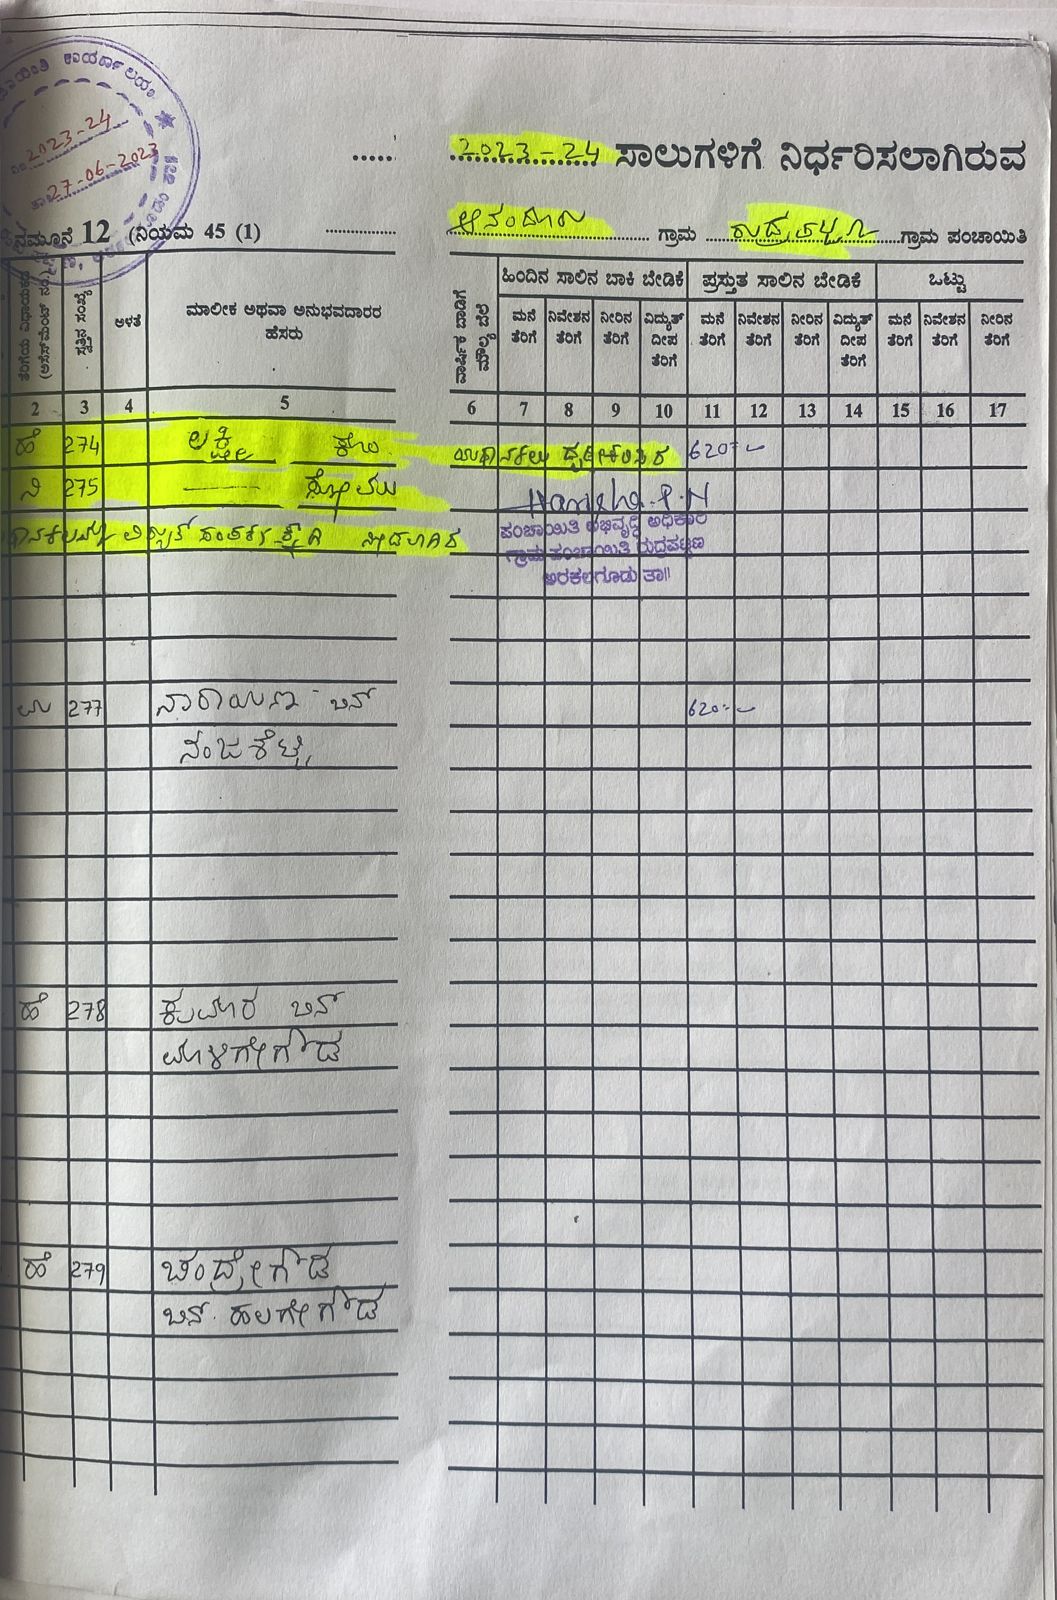 ಕಾರ್ಯಾಲಯ
ನಂ 2023-24
ತಾ 27-06-2023
2023-24 ಸಾಲುಗಳಿಗೆ ನಿರ್ಧರಿಸಲಾಗಿರುವ
ನಮೂನೆ 12 (ನಿಯಮ 45 (1)
ಗ್ರಾಮ ರುದ್ರಪಟ್ಟಣ ಗ್ರಾಮ ಪಂಚಾಯಿತಿ
ಸ್ವತ್ತಿನ ಸಂಖ್ಯೆ
ಅಳತೆ
ಮಾಲೀಕ ಅಥವಾ ಅನುಭವದಾರರ
ಹೆಸರು
ವಾರ್ಷಿಕ ಬಾಡಿಗೆ
ಮೌಲ್ಯ ಬೆಲೆ
ಹಿಂದಿನ ಸಾಲಿನ ಬಾಕಿ ಬೇಡಿಕೆ ಪ್ರಸ್ತುತ ಸಾಲಿನ ಬೇಡಿಕೆ ಒಟ್ಟು
ಮನೆ ತೆರಿಗೆ ನಿವೇಶನ ತೆರಿಗೆ ನೀರಿನ ತೆರಿಗೆ ವಿದ್ಯುತ್ ದೀಪ ತೆರಿಗೆ ಮನೆ ತೆರಿಗೆ ನಿವೇಶನ ತೆರಿಗೆ ನೀರಿನ ತೆರಿಗೆ ವಿದ್ಯುತ್ ದೀಪ ತೆರಿಗೆ ಮನೆ ತೆರಿಗೆ ನಿವೇಶನ ತೆರಿಗೆ ನೀರಿನ ತೆರಿಗೆ
2 3 4 5 6 7 8 9 10 11 12 13 14 15 16 17
ಹೆ 274 ಲಕ್ಷ್ಮೀ ಕೋಂ 620=
ನಿ 275
Harisha.P.N
ಪಂಚಾಯಿತಿ ಅಭಿವೃದ್ಧಿ ಅಧಿಕಾರಿ
ಗ್ರಾಮ ಪಂಚಾಯಿತಿ ರುದ್ರಪಟ್ಟಣ
ಅರಕಲಗೂಡು ತಾ||
277 ನಾರಾಯಣ ಬಿನ್ 620=
ನಂಜಶೆಟ್ಟಿ
ಹೆ 278 ಕುಮಾರ ಬಿನ್
ಮಾಳಿಗೇಗೌಡ
ಹೆ 279 ಚಂದ್ರೇಗೌಡ
ಬಿನ್ ಹಲಗೇಗೌಡ